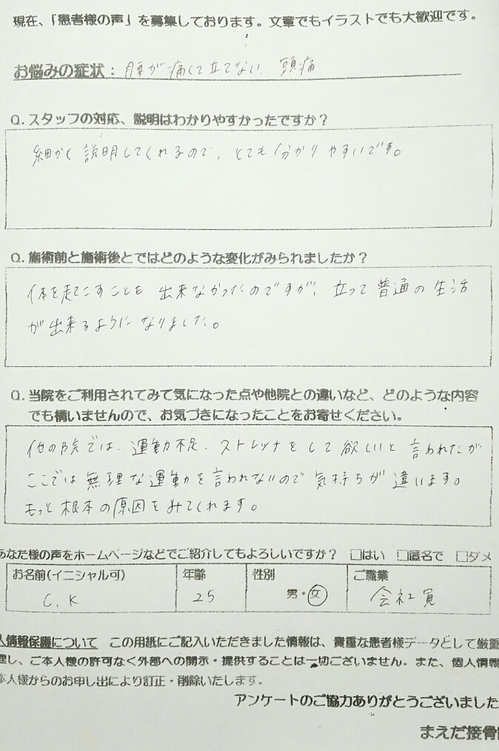 現在、「患者様の声」を募集しております。文章でもイラストでも大歓迎です。
お悩みの症状: 腰が痛くて立てない 頭痛
Q.スタッフの対応、説明はわかりやすかったですか?
細かく説明してくれるので、とても分かりやすいです。
Q.施術前と施術後とではどのような変化がみられましたか?
体を起こすことも出来なかったのですが、立って普通の生活
が出来るようになりました。
Q.当院をご利用されてみて気になった点や他院との違いなど、どのような内容
でも構いませんので、お気づきになったことをお寄せください。
他の院では、運動不足、ストレッチをして欲しいと言われたが
ここでは無理な運動を言われないので気持ちが違います。
もっと根本の原因をみてくれます。
あなた様の声をホームページなどでご紹介してもよろしいですか? □はい □匿名で □ダメ
お名前(イニシャル可) 年齢 性別 ご職業
C.K 25 男・女 会社員
人情報保護について この用紙にご記入いただきました情報は、貴重な患者様データとして厳重
理し、ご本人様の許可なく外部への開示・提供することは一切ございません。また、個人情報
本人様からのお申し出により訂正・削除いたします。
アンケートのご協力ありがとうございました
まえだ接骨